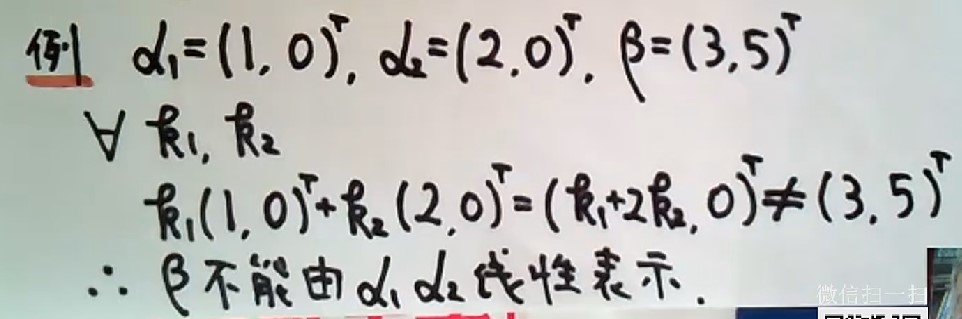 例 α₁=(1, 0)ᵀ, α₂=(2, 0)ᵀ, β=(3, 5)ᵀ
∀ k₁, k₂
k₁(1, 0)ᵀ+k₂(2, 0)ᵀ=(k₁+2k₂, 0)ᵀ≠(3, 5)ᵀ
∴ β不能由α₁ α₂线性表示.
微信扫一扫